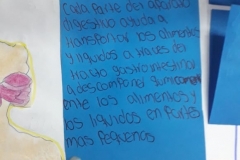 Cada Parte del aparato
digestivo ayuda a
transportar los alimentos
y liquidos a traves del
tracto gastrointestinal
a descomponer quimicam
ente los alimentos y
los liquidos en Partes
mas pequenas